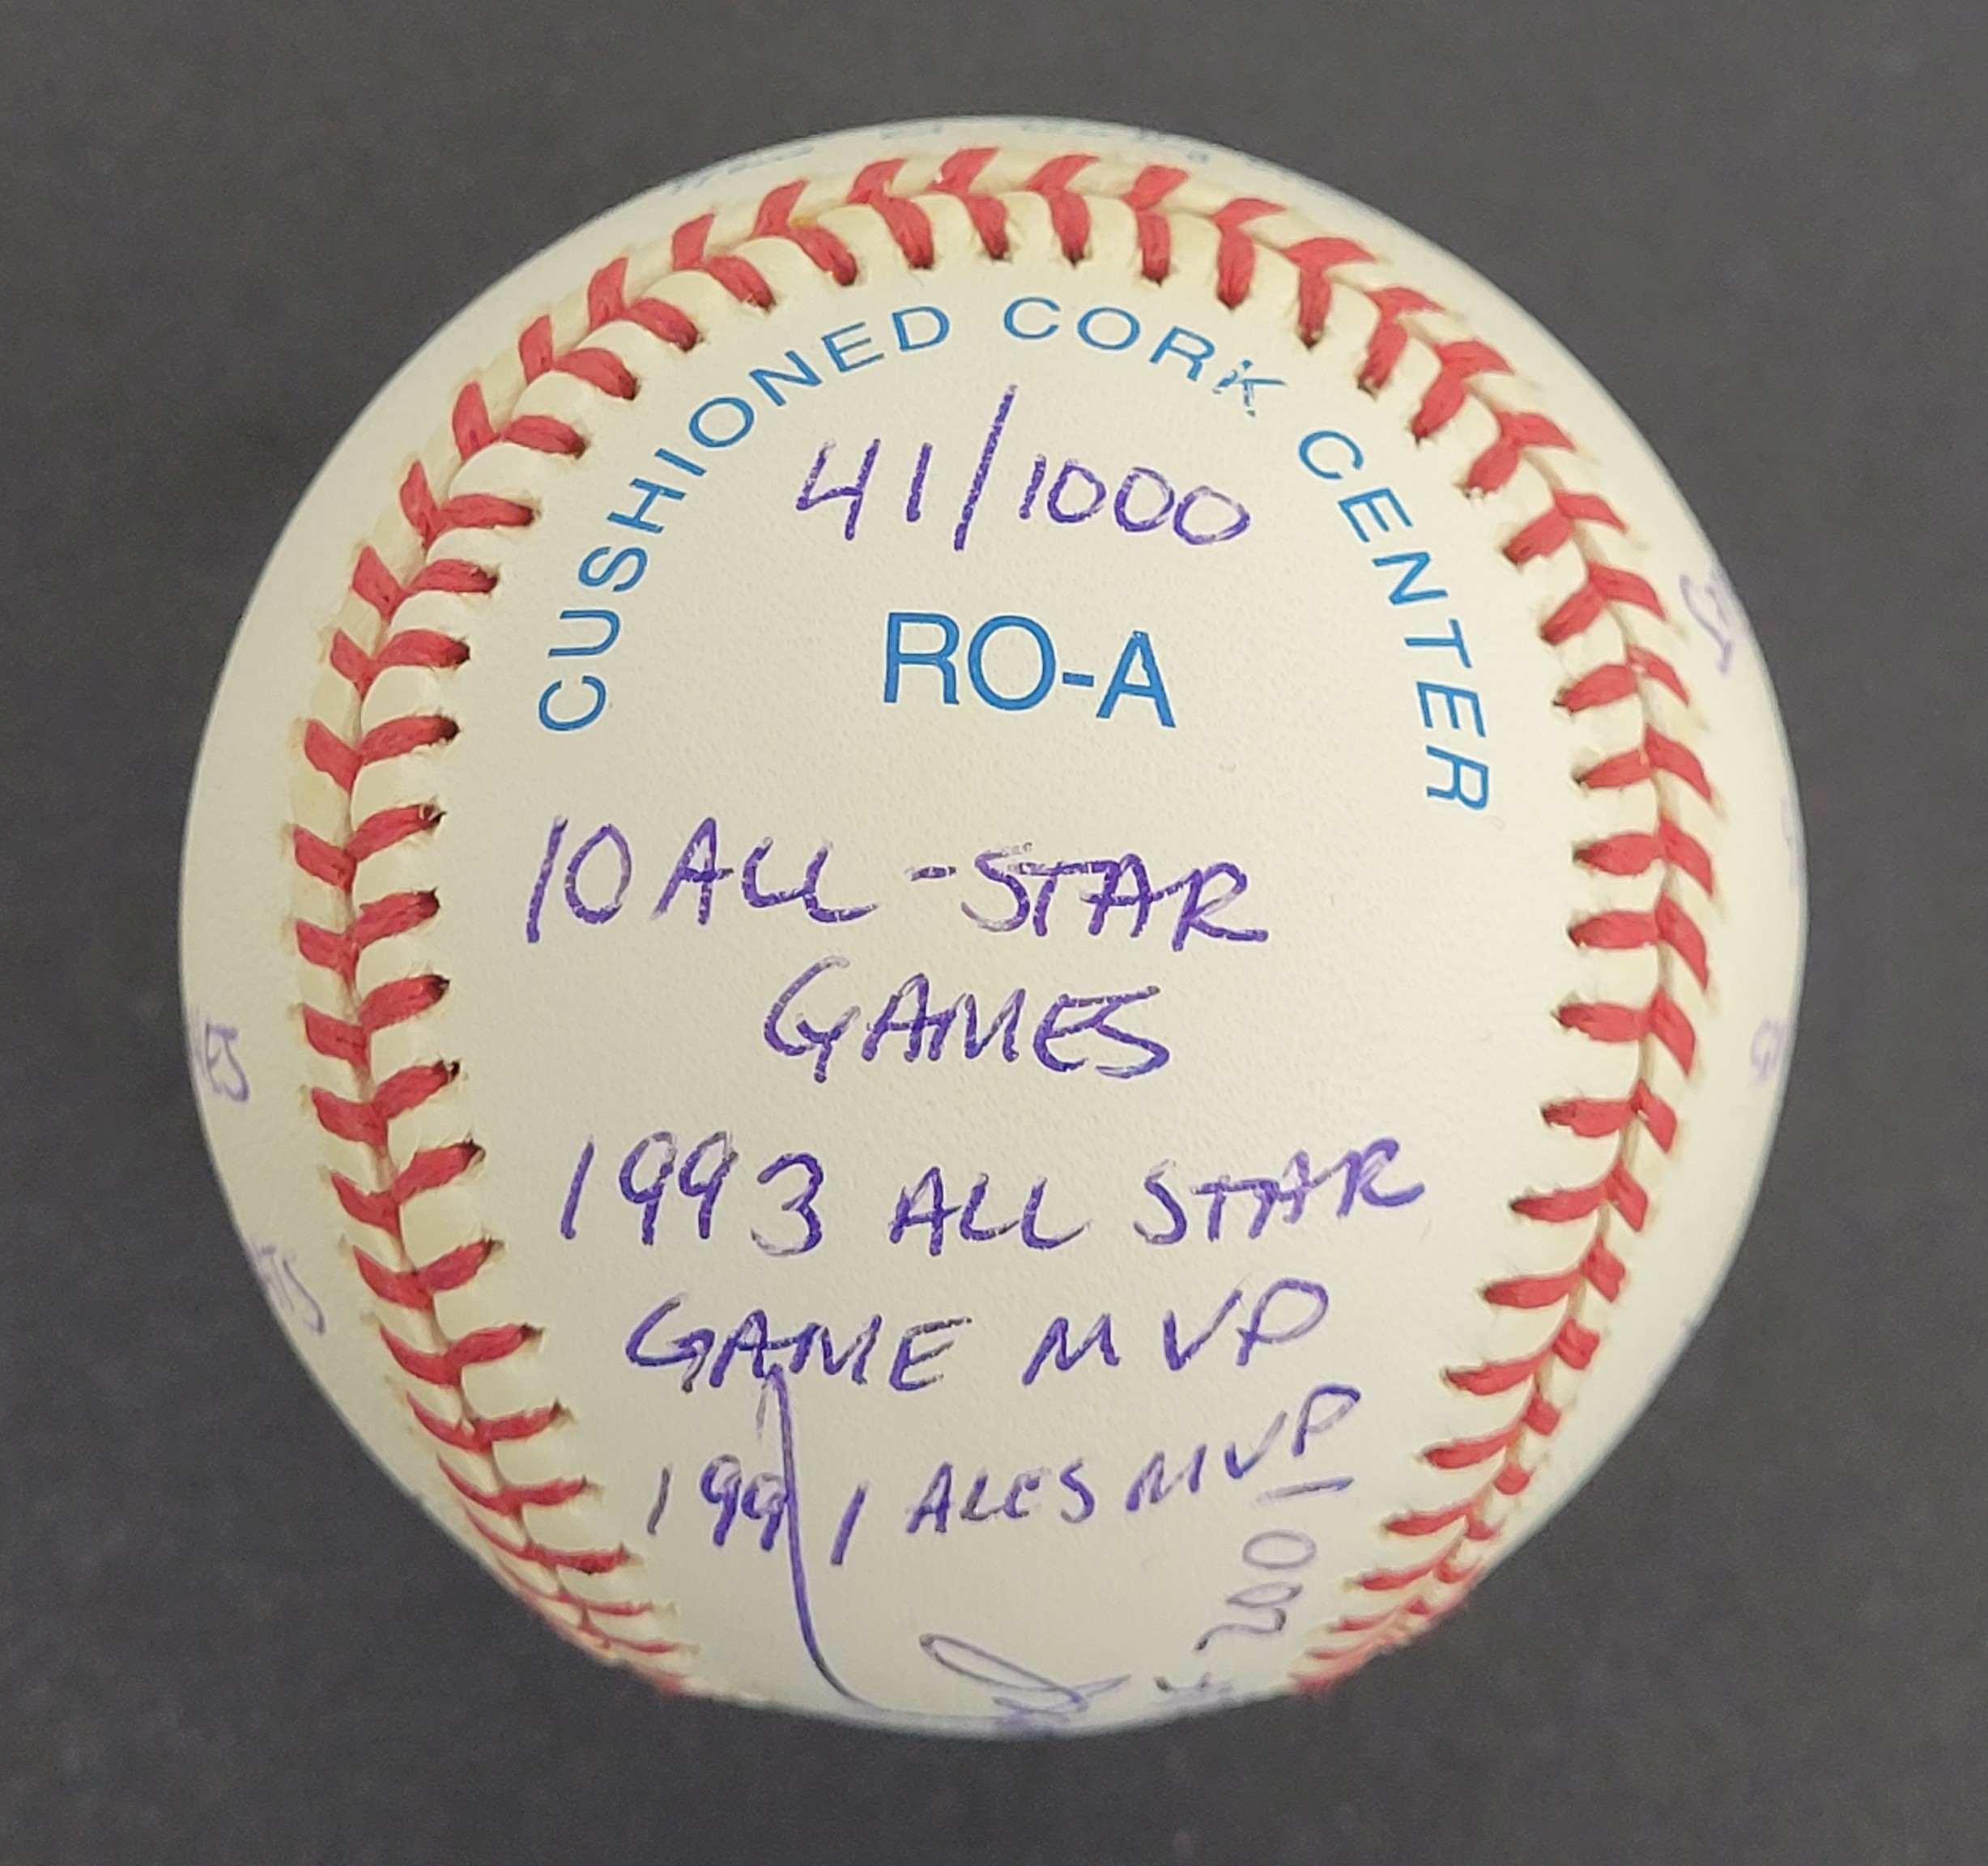 CUSHIONED CORK CENTER
41/1000
RO-A
10 ALL-STAR
GAMES
1993 ALL STAR
GAME MVP
1991 ALCS MVP
2001